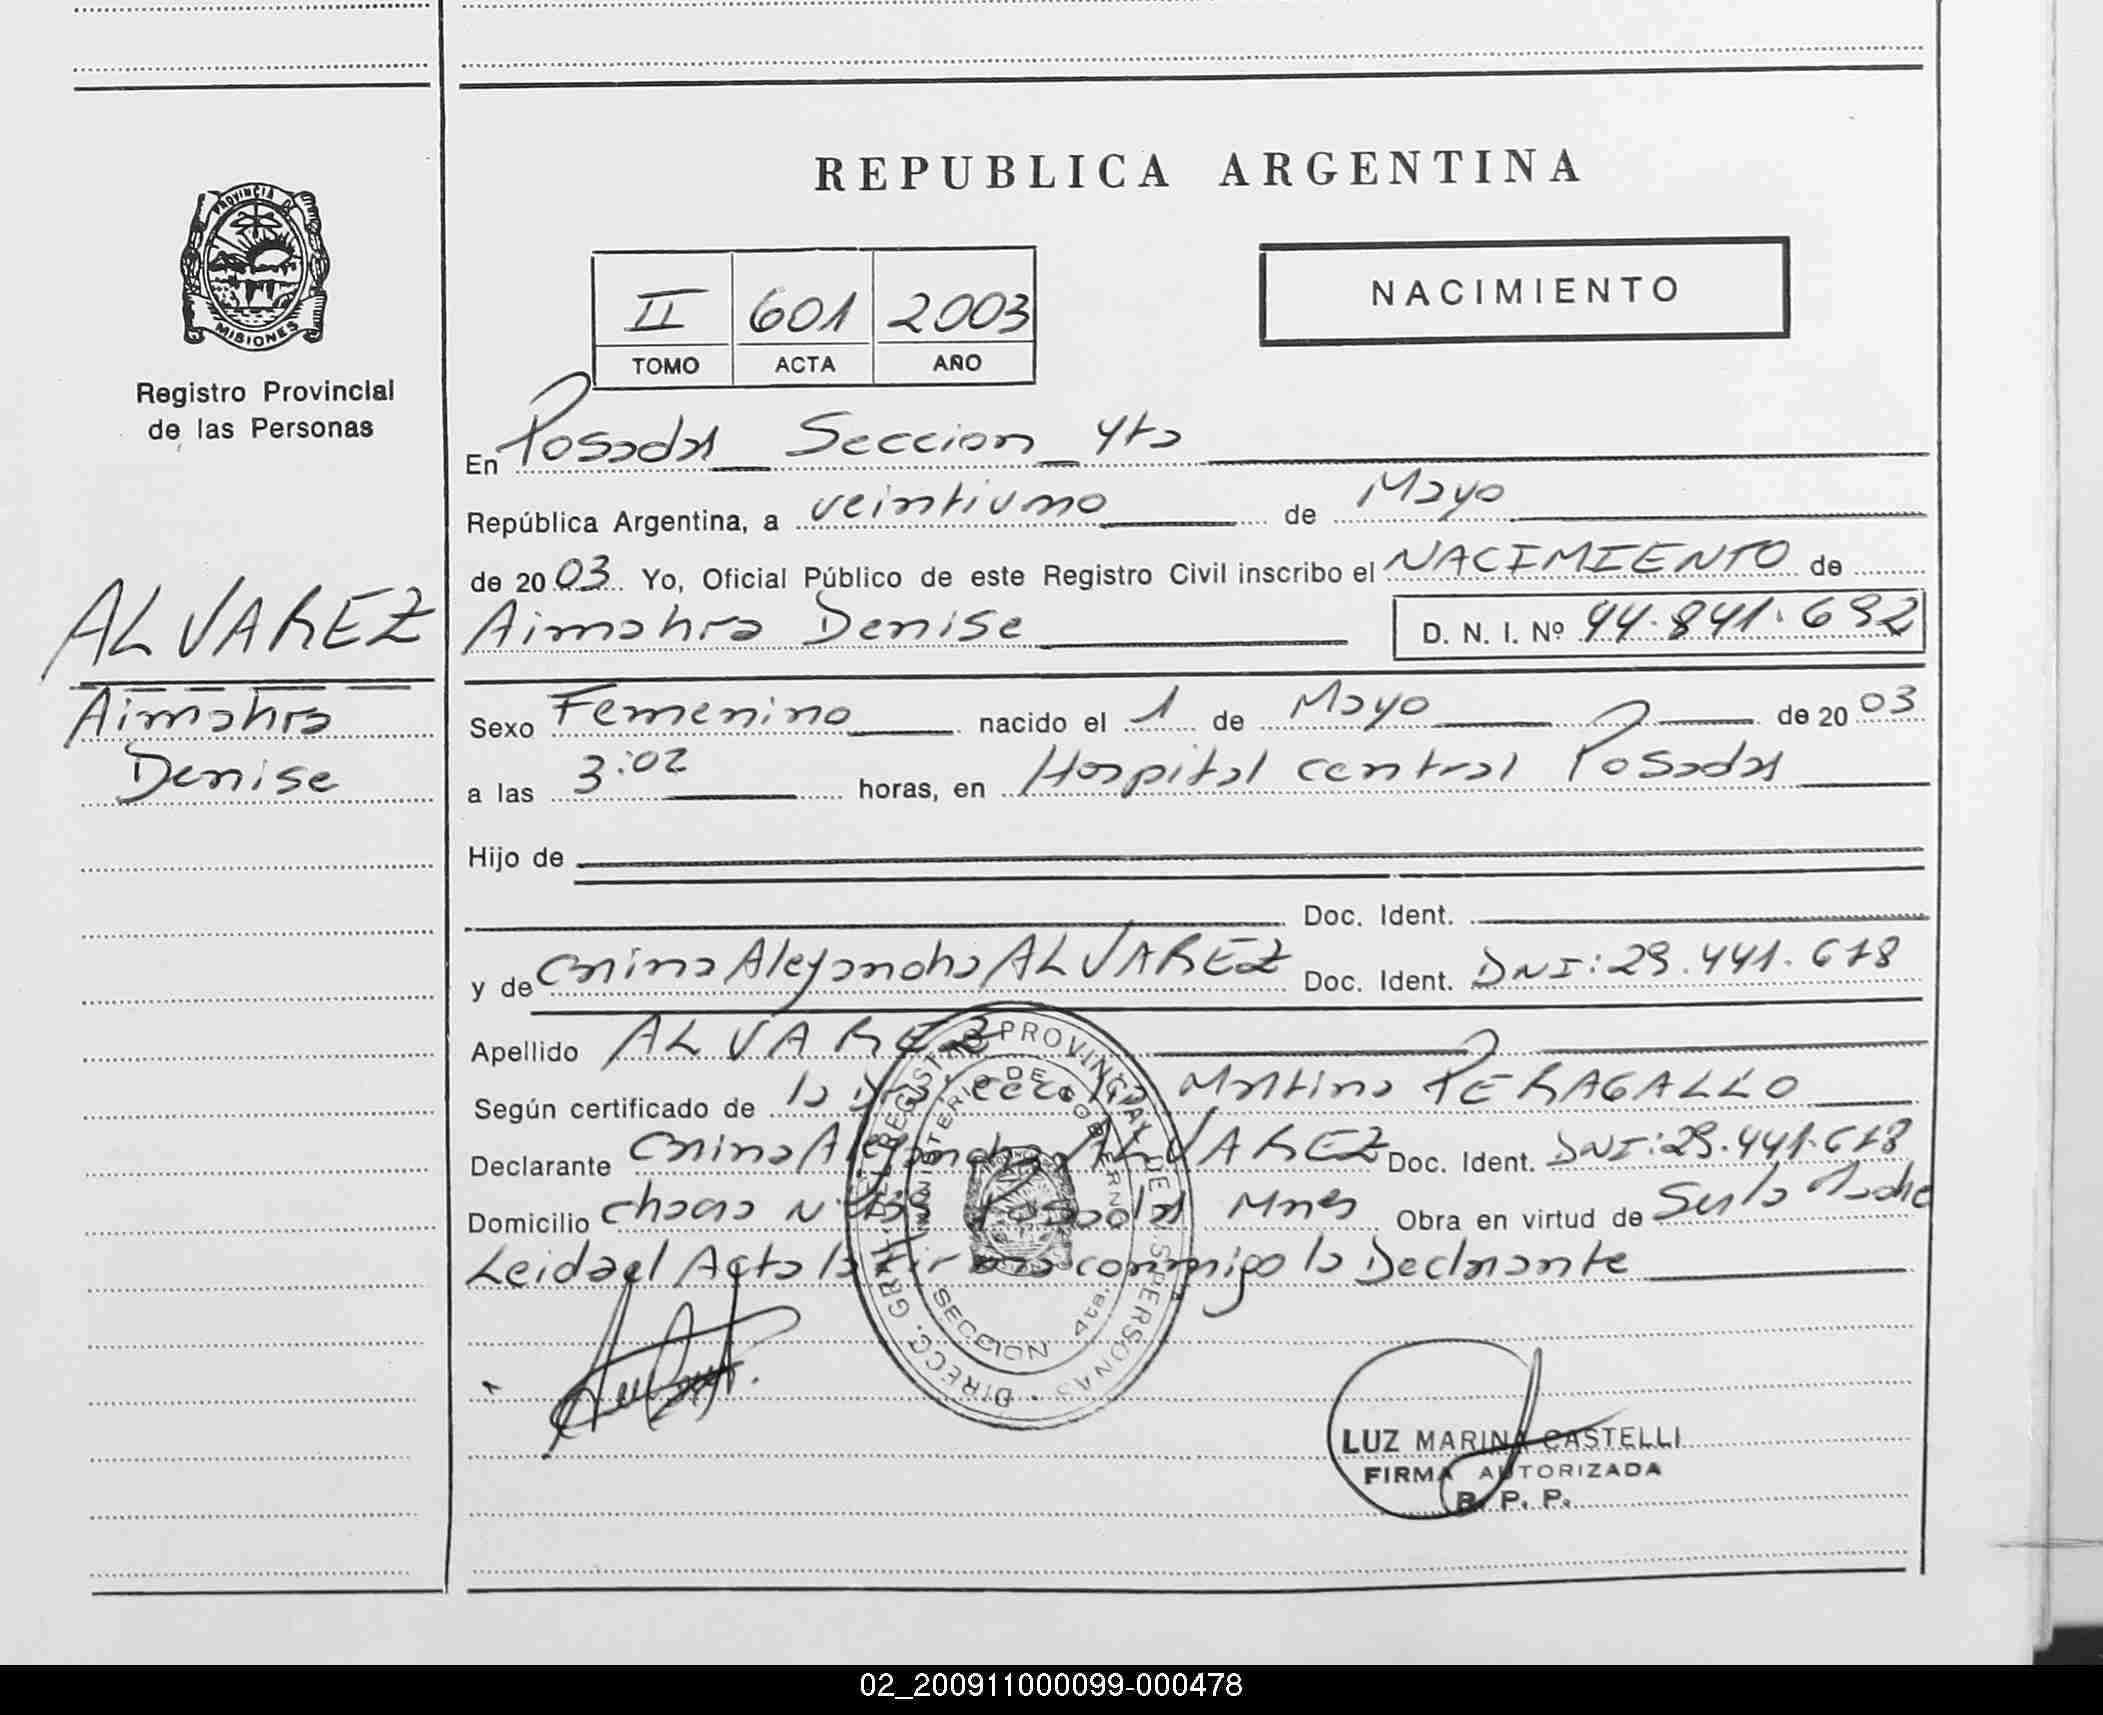 REPUBLICA ARGENTINA
PROVINCIA DE
MISIONES
Registro Provincial
de las Personas
II 601 2003
TOMO ACTA AÑO
NACIMIENTO
En Posadas Seccion 4ta
República Argentina, a veintiuno de Mayo
de 2003 Yo, Oficial Público de este Registro Civil inscribo el NACIMIENTO de
ALVAREZ
Aimahra Denise D. N. I. Nº 44.841.692
Aimahra
Denise
Sexo Femenino nacido el 1 de Mayo de 2003
a las 3:02 horas, en Hospital central Posadas
Hijo de
Doc. Ident.
y de Alejandra ALVAREZ Doc. Ident. DNI: 29.441.678
Apellido ALVAREZ
Según certificado de la Martina PERAGALLO
Declarante Alejandra ALVAREZ Doc. Ident. DNI: 29.441.678
Domicilio Chacra Posadas Mnes Obra en virtud de Ser la Madre
Leida el Acta la Firma conmigo la Declarante
DIRECC. GRAL. REGISTRO PROVINCIAL DE PERSONAS
MINISTERIO DE GOBIERNO
SECCION 4ta.
LUZ MARINA CASTELLI
FIRMA AUTORIZADA
R. P. P.
02_200911000099-000478